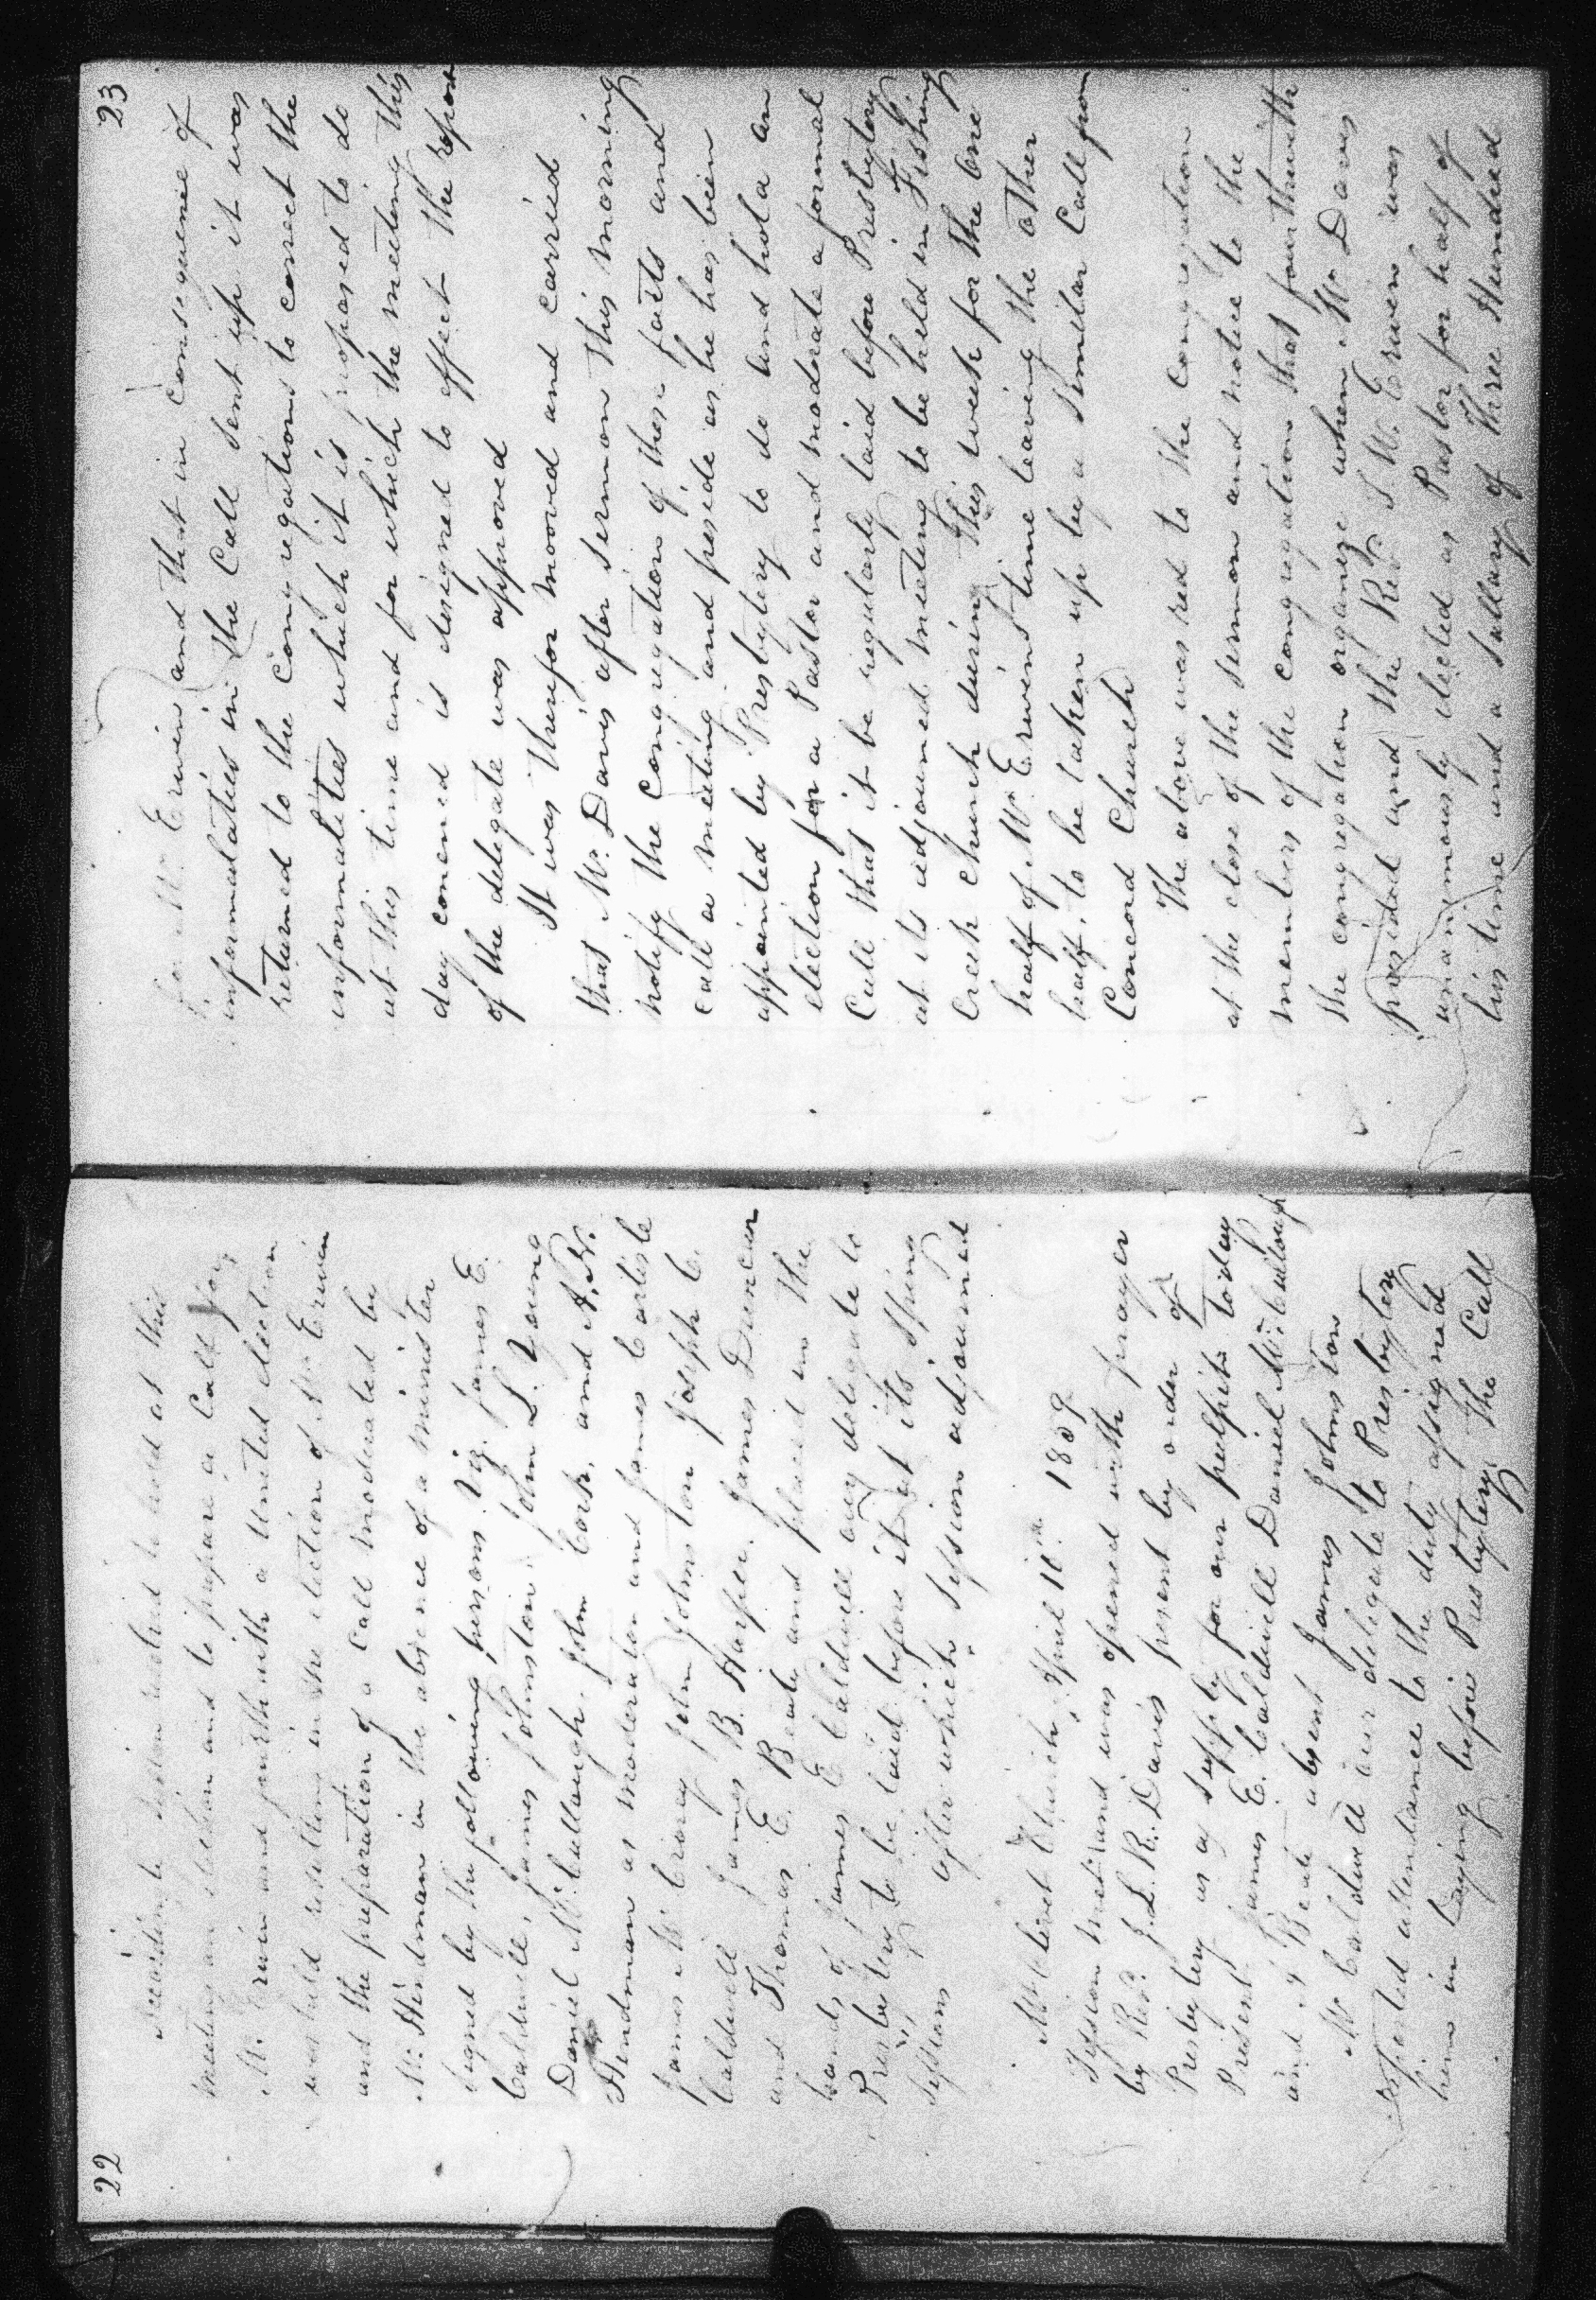 22
According to Session resolved to hold at this
meeting an election and to prepare a Call for
Mr. Erwin and forthwith a united election
was held resulting in the election of Mr Erwin
and the preparation of a call moderated by
Mr. Hindman in the absence of a minister
signed by the following persons. Viz. James E.
Caldwell, James Johnston. John L. Young
Daniel McCullough. John Cork, and A. N.
Hindman as moderator and James Carlisle
James McCrorey John Johnston Joseph C.
Caldwell James B. Harper. James Duncan
and Thomas E. Beaty and placed in the
hands of James E Caldwell our delegate to
Presbytery to be laid before it at its Spring
Sessions after which Session adjourned
Mt Olivet Church, April 10th 1859
Session met and was opened with prayer
by Revd J. L. R. Davis present by order of
Presbytery as a supply for our pulpit to day
Present James E. Caldwell Daniel McCullough
and Beaty absent James Johnston
Mr Caldwell our delegate to Presbytery
reported attendance to the duty assigned
him in laying before Presbytery the Call
23
for Mr. Erwin and that in consequence of
informalities in the Call sent up it was
returned to the congregations to correct the
informalities which it is proposed to do
at this time and for which the meeting this
day conened is designed to effect the report
of the delegate was approved
It was therefor mooved and carried
that Mr. Davis after sermon this morning
notify the congregation of these facts and
call a meeting and preside as he has been
appointed by Presbytery to do and hold an
election for a Pastor and moderate a formal
Call that it be regularly laid before Presbytery
at its adjourned meeting to be held in Fishing
Creek Church during this week for the one
half of Mr. Erwins time leaving the other
half, to be taken up by a similar Call from
Concord Church
The above was red to the congregation
at the close of the sermon and notice to the
members of the congregation that forthwith
the congregation organize when Mr Davis
presided and the Revd I. W. Erwin was
unanimously elected as Pastor for half of
his time and a sallary of three Hundred